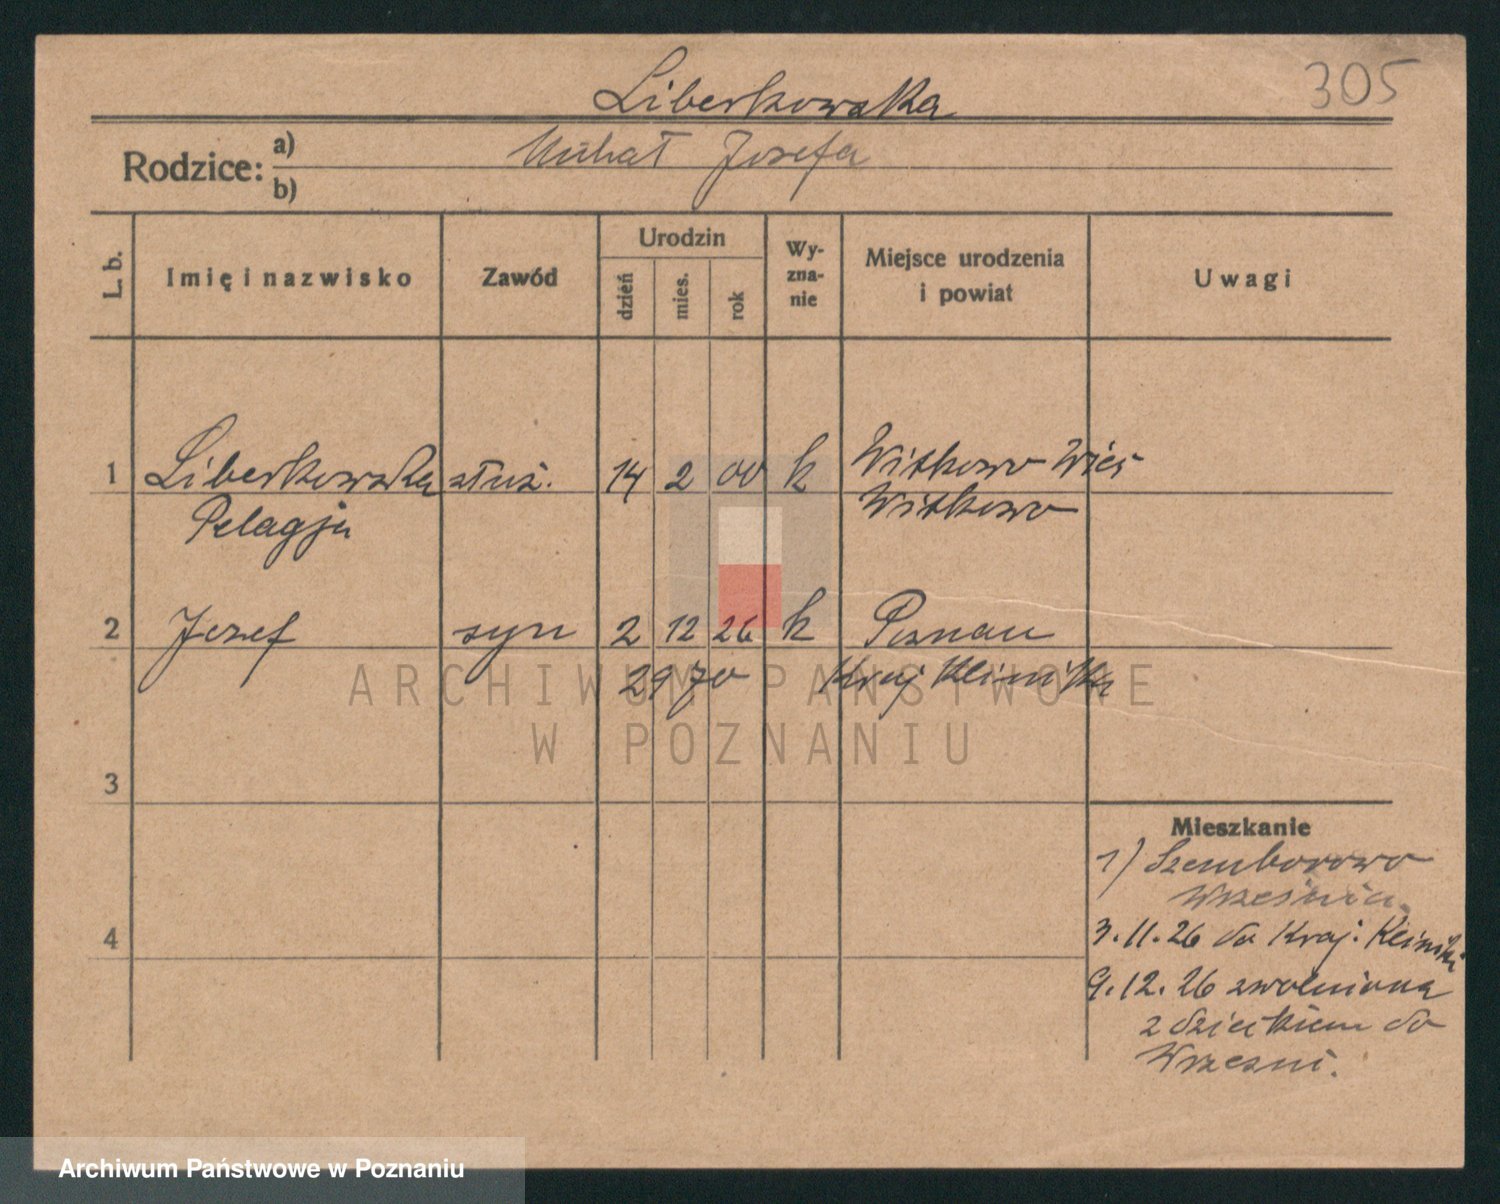 305
Liberkowska
Rodzice: a) Michał Józefa
b)
L. b. Imię i nazwisko Zawód Urodzin dzień mies. rok Wy-zna-nie Miejsce urodzenia i powiat Uwagi
1 Liberkowska służ. 14 2 00 k Witkowo Wieś
Pelagja Witkowo
2 Józef syn 2 12 26 k Poznań
2970 Kraj Klinika
3
Mieszkanie
1) Szemborowo
Września.
4
3.11.26 do Kraj. Kliniki
9.12.26 zwolniona
z dzieckiem do
Wrzesni.
ARCHIWUM PAŃSTWOWE
W POZNANIU
Archiwum Państwowe w Poznaniu